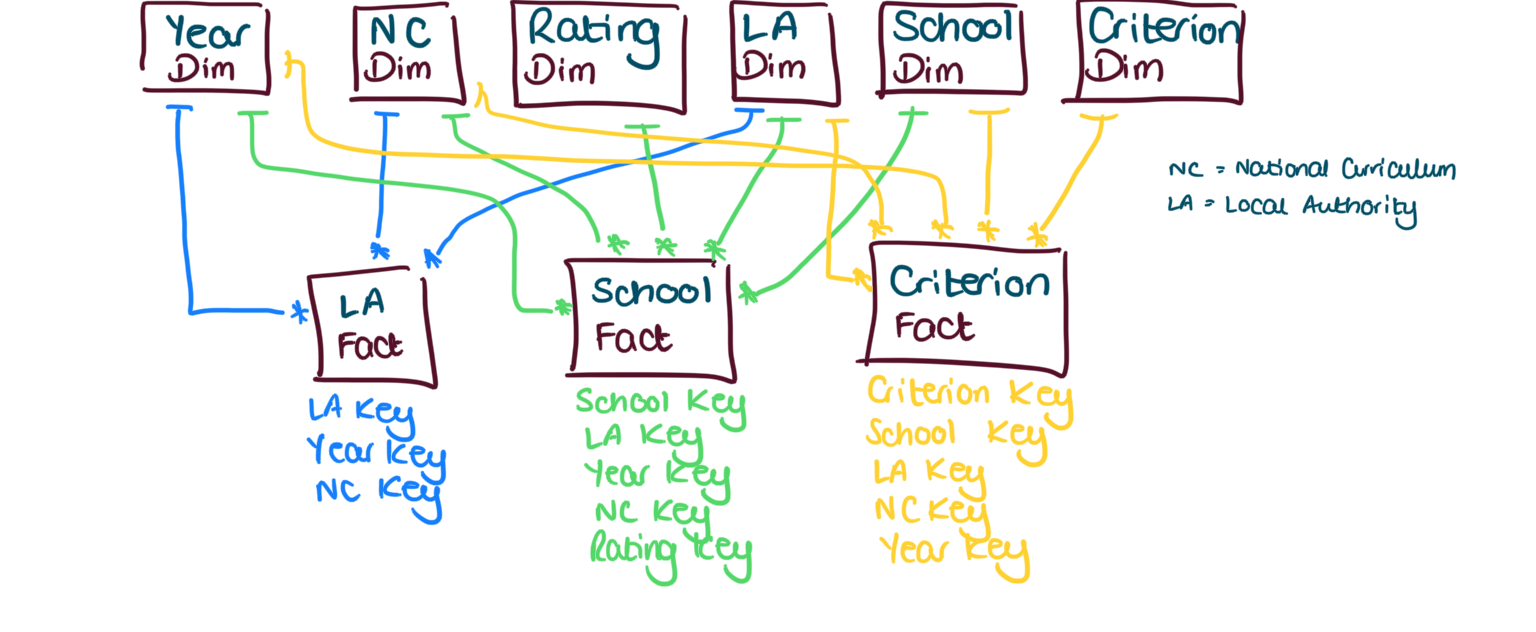 Year
Dim
NC
Dim
Rating
Dim
LA
Dim
School
Dim
Criterion
Dim
NC = National Curriculum
LA = Local Authority
LA
Fact
LA Key
Year Key
NC Key
School
Fact
School Key
LA Key
Year Key
NC Key
Rating Key
Criterion
Fact
Criterion Key
School Key
LA Key
NC Key
Year Key